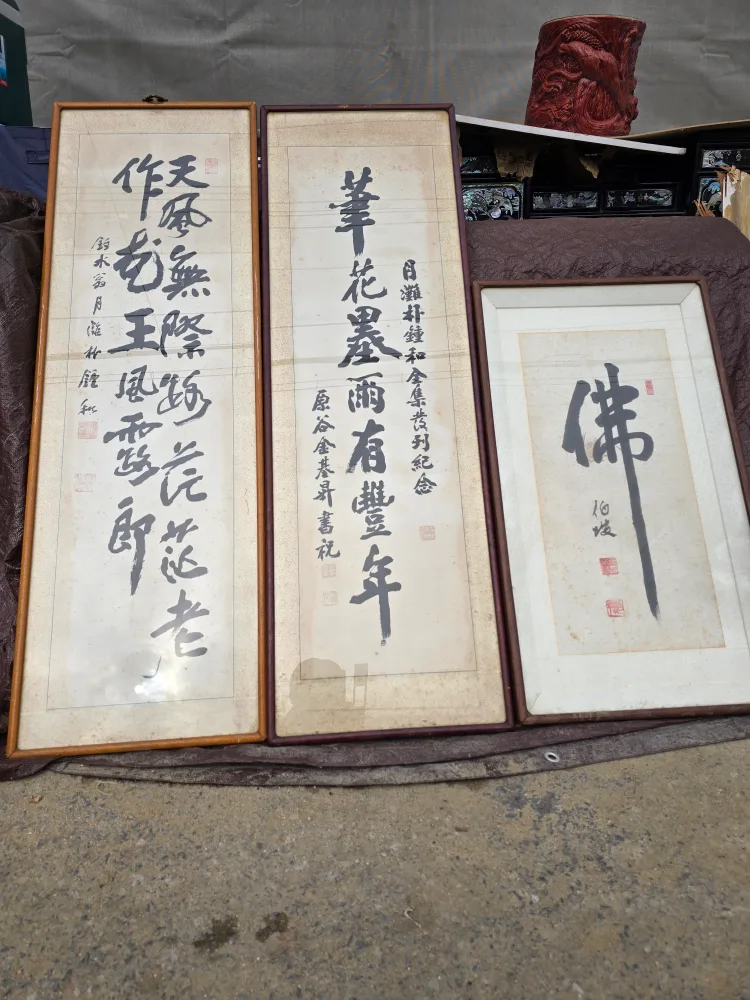 天風無際路茫茫老
作花王風露郎
水翁月灘朴鍾和
月灘朴鍾和全集發刊紀念
筆花墨雨有豐年
原谷金基昇書祝
佛
伯